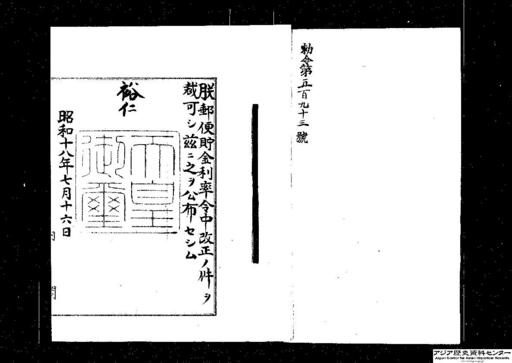 勅令第五百九十三號
朕郵便貯金利率令中改正ノ件ヲ
裁可シ茲ニ之ヲ公布セシム
裕仁
天皇
御璽
昭和十八年七月十六日
内閣
アジア歴史資料センター
Japan Center for Asian Historical Records